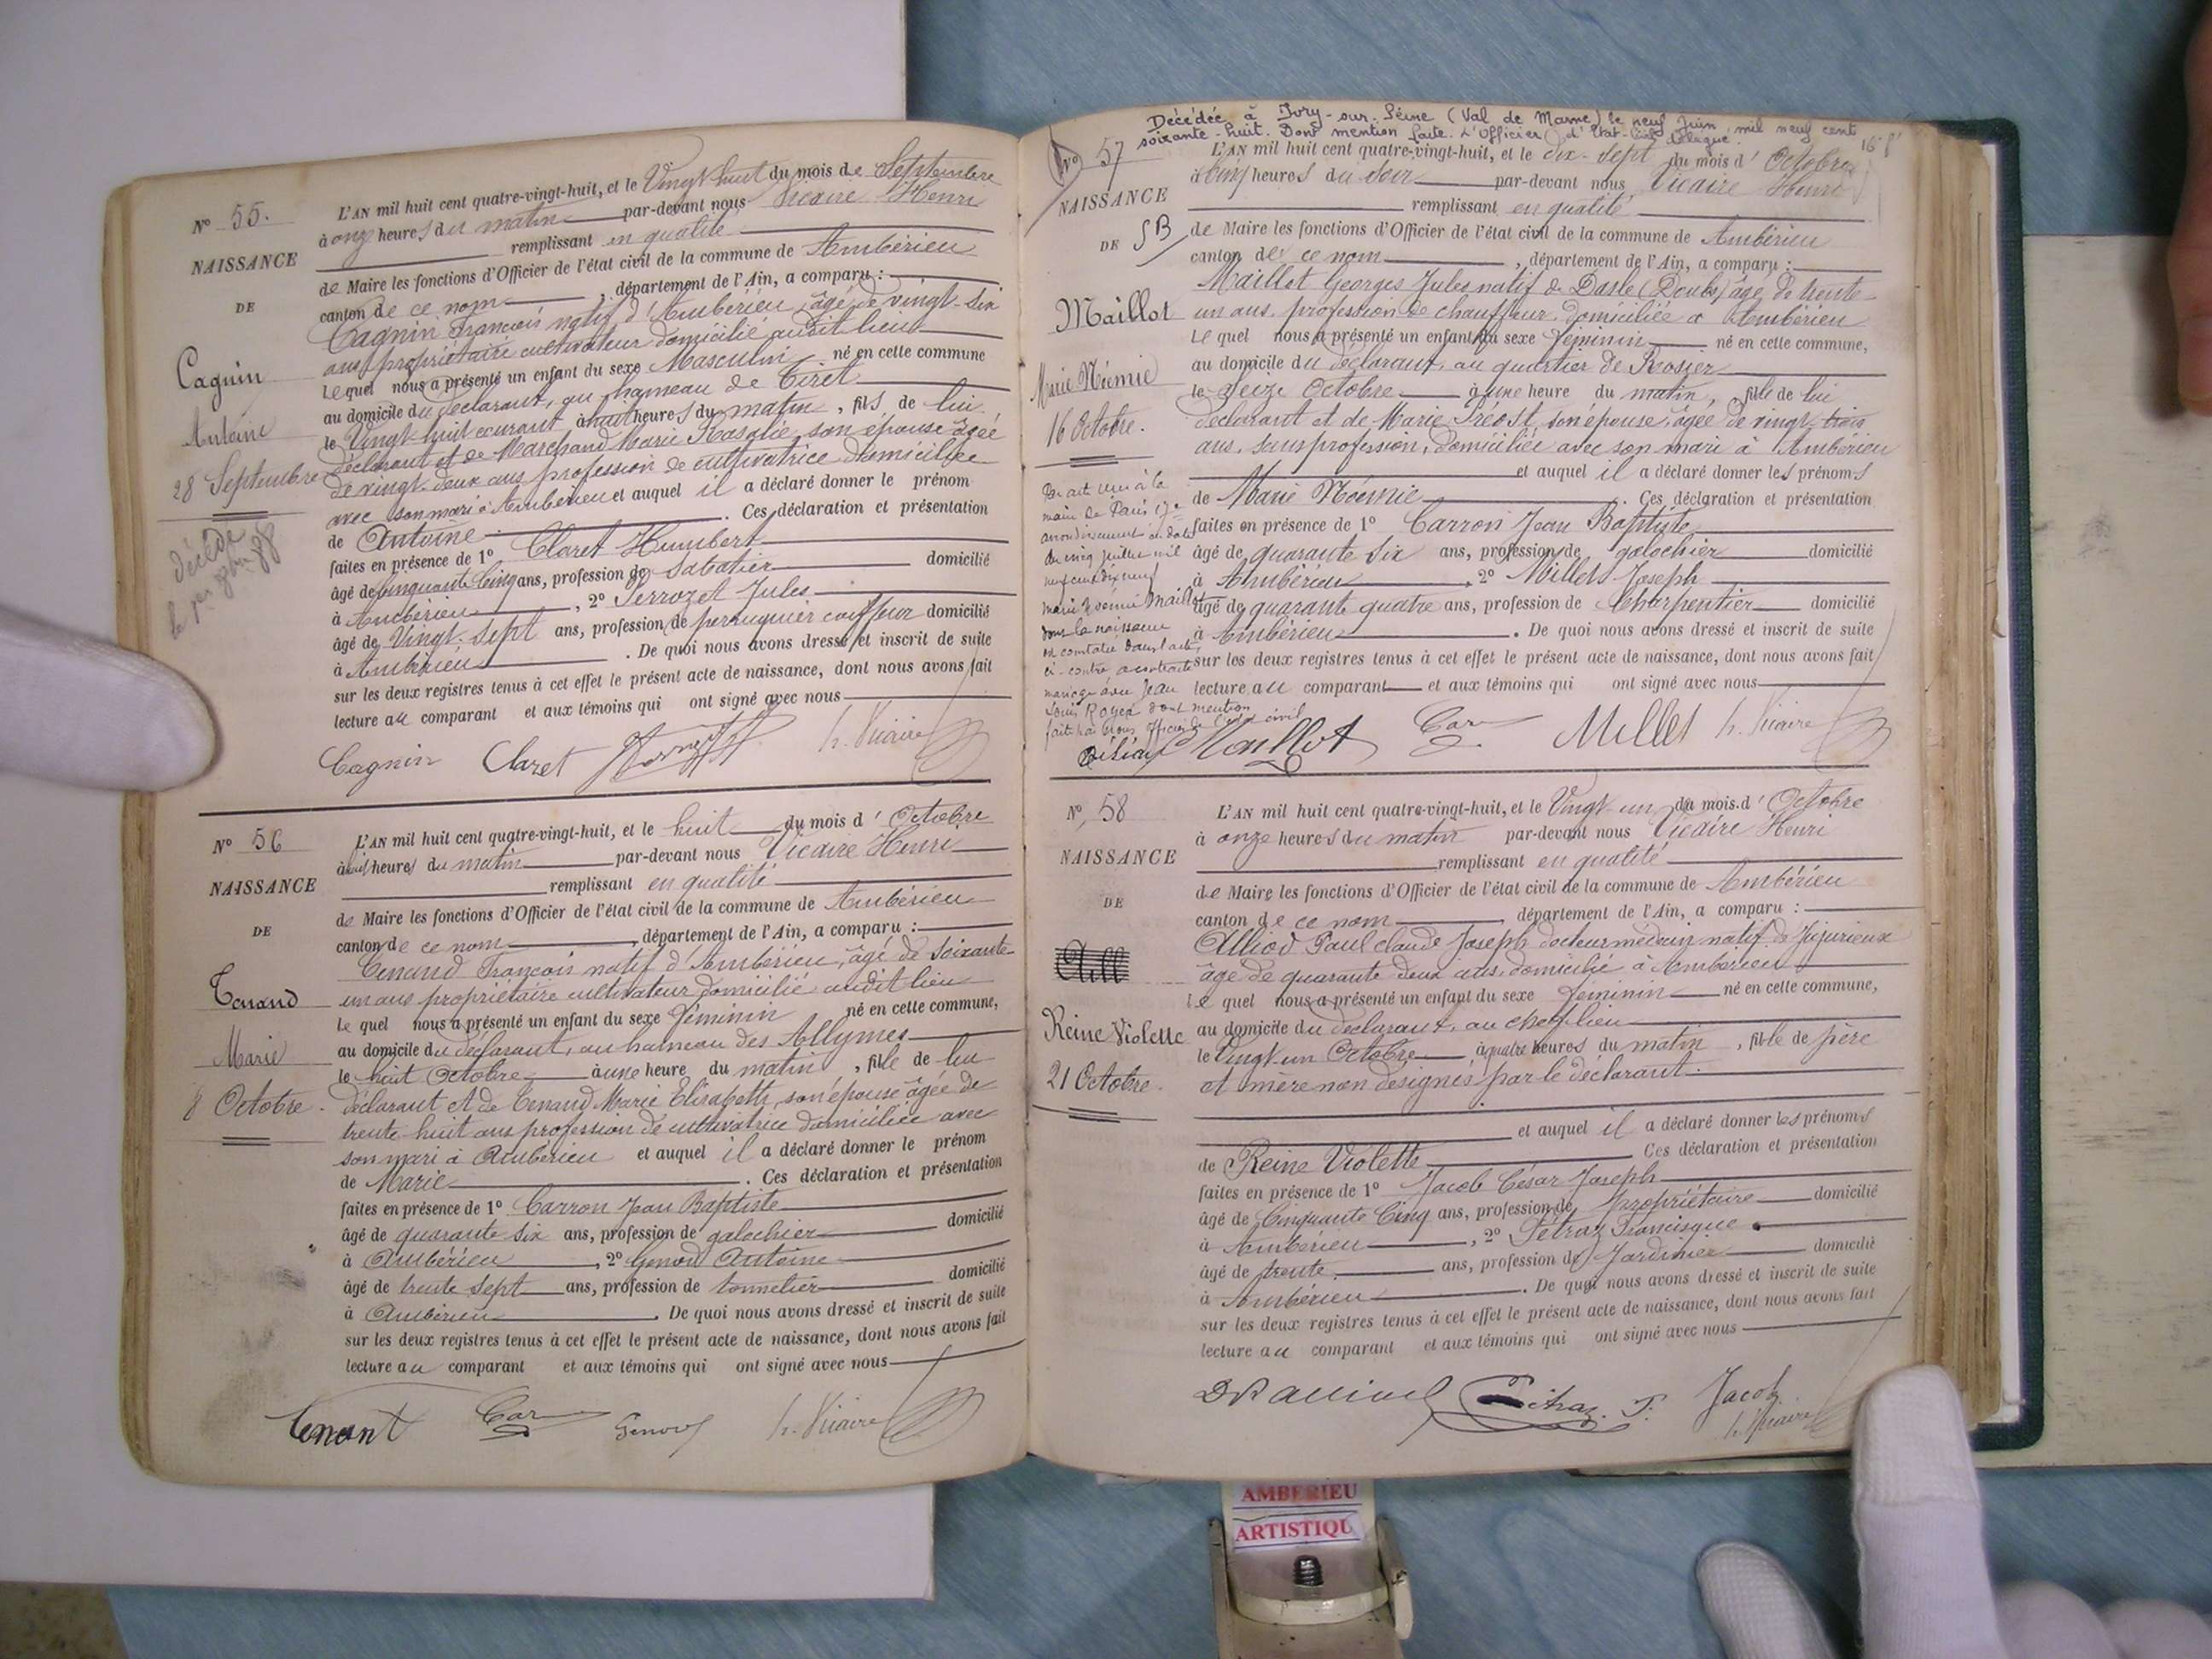 Nº 55.
NAISSANCE
DE
Cagnin
Antoine
28 Septembre
décédé
L'AN mil huit cent quatre-vingt-huit, et le Vingt huit du mois de Septembre
à onze heures du matin par-devant nous Vicaire Henri
remplissant en qualité
de Maire les fonctions d'Officier de l'état civil de la commune de Ambérieu
canton de ce nom, département de l'Ain, a comparu :
Cagnin François natif d'Ambérieu, âgé de vingt-six
ans propriétaire cultivateur domicilié audit lieu
Lequel nous a présenté un enfant du sexe Masculin né en cette commune
au domicile du déclarant, au hameau de Tiret
le Vingt-huit courant à huit heures du matin, fils de lui
déclarant et de Marchand Marie Rosalie, son épouse âgée
de vingt-deux ans profession de cultivatrice domiciliée
avec son mari à Ambérieu et auquel il a déclaré donner le prénom
de Antoine. Ces déclaration et présentation
faites en présence de 1º Claret Humbert
âgé de cinquante cinq ans, profession de Sabotier domicilié
à Ambérieu, 2º Perrozet Jules
âgé de Vingt-sept ans, profession de perruquier coiffeur domicilié
à Ambérieu. De quoi nous avons dressé et inscrit de suite
sur les deux registres tenus à cet effet le présent acte de naissance, dont nous avons fait
lecture au comparant et aux témoins qui ont signé avec nous
Cagnin Claret h. Vicaire
Nº 56
NAISSANCE
DE
Tenand
Marie
8 Octobre.
L'AN mil huit cent quatre-vingt-huit, et le huit du mois d'Octobre
à huit heures du matin par-devant nous Vicaire Henri
remplissant en qualité
de Maire les fonctions d'Officier de l'état civil de la commune de Ambérieu
canton de ce nom, département de l'Ain, a comparu :
Tenand François natif d'Ambérieu, âgé de soixante-
un ans propriétaire cultivateur domicilié audit lieu
Lequel nous a présenté un enfant du sexe féminin né en cette commune,
au domicile du déclarant, au hameau des Allymes
le huit Octobre à une heure du matin, fille de lui
déclarant et de Tenand Marie Elisabeth, son épouse âgée de
trente-huit ans profession de cultivatrice domiciliée avec
son mari à Ambérieu et auquel il a déclaré donner le prénom
de Marie. Ces déclaration et présentation
faites en présence de 1º Carron Jean Baptiste
âgé de quarante six ans, profession de galochier domicilié
à Ambérieu, 2º Genod Antoine
âgé de trente sept ans, profession de tonnelier domicilié
à Ambérieu. De quoi nous avons dressé et inscrit de suite
sur les deux registres tenus à cet effet le présent acte de naissance, dont nous avons fait
lecture au comparant et aux témoins qui ont signé avec nous
Tenant Car Genod h. Vicaire
Décédée à Ivry-sur-Seine (Val de Marne) le neuf Juin mil neuf cent
soixante-huit. Dont mention faite. L'Officier d'Etat-Civil délégué.
Nº 57
NAISSANCE
DE
Maillot
Marie Noémie
16 Octobre.
Par acte reçu à la
mairie de Paris 17e
arrondissement en date
du cinq juillet mil
neuf cent dix neuf
Marie Noémie Maillot
dont la naissance
est constatée dans l'acte
ci-contre a contracté
mariage avec Jean
Louis Royer dont mention
faite par nous officier de l'état civil
L'AN mil huit cent quatre-vingt-huit, et le dix-sept du mois d'Octobre
à cinq heures du soir par-devant nous Vicaire Henri
remplissant en qualité
de Maire les fonctions d'Officier de l'état civil de la commune de Ambérieu
canton de ce nom, département de l'Ain, a comparu :
Maillot Georges Jules natif de Dasle (Doubs) âgé de trente-
un ans, profession de chauffeur domiciliée à Ambérieu
Lequel nous a présenté un enfant du sexe féminin né en cette commune,
au domicile du déclarant, au quartier de Rosier
le Seize Octobre à une heure du matin, fille de lui
déclarant et de Marie Préost, son épouse, âgée de vingt-trois
ans, sans profession, domiciliée avec son mari à Ambérieu
et auquel il a déclaré donner les prénoms
de Marie Noémie. Ces déclaration et présentation
faites en présence de 1º Carron Jean Baptiste
âgé de quarante six ans, profession de galochier domicilié
à Ambérieu, 2º Millet Joseph
âgé de quarante quatre ans, profession de Charpentier domicilié
à Ambérieu. De quoi nous avons dressé et inscrit de suite
sur les deux registres tenus à cet effet le présent acte de naissance, dont nous avons fait
lecture au comparant et aux témoins qui ont signé avec nous
Maillot Car Millet h. Vicaire
Nº 58
NAISSANCE
DE
Reine Violette
21 Octobre.
L'AN mil huit cent quatre-vingt-huit, et le Vingt-un du mois d'Octobre
à onze heures du matin par-devant nous Vicaire Henri
remplissant en qualité
de Maire les fonctions d'Officier de l'état civil de la commune de Ambérieu
canton de ce nom, département de l'Ain, a comparu :
Alliod Paul Claude Joseph docteur médecin natif de Jujurieux
âgé de quarante deux ans, domicilié à Ambérieu
Lequel nous a présenté un enfant du sexe féminin né en cette commune,
au domicile du déclarant, au chef-lieu
le Vingt-un Octobre à quatre heures du matin, fille de père
et mère non désignés par le déclarant.
et auquel il a déclaré donner les prénoms
de Reine Violette. Ces déclaration et présentation
faites en présence de 1º Jacob César Joseph
âgé de Cinquante Cinq ans, profession de propriétaire domicilié
à Ambérieu, 2º Pétraz Francisque
âgé de trente ans, profession de Jardinier domicilié
à Ambérieu. De quoi nous avons dressé et inscrit de suite
sur les deux registres tenus à cet effet le présent acte de naissance, dont nous avons fait
lecture au comparant et aux témoins qui ont signé avec nous
Jacob
h. Vicaire
AMBERIEU
ARTISTIQU